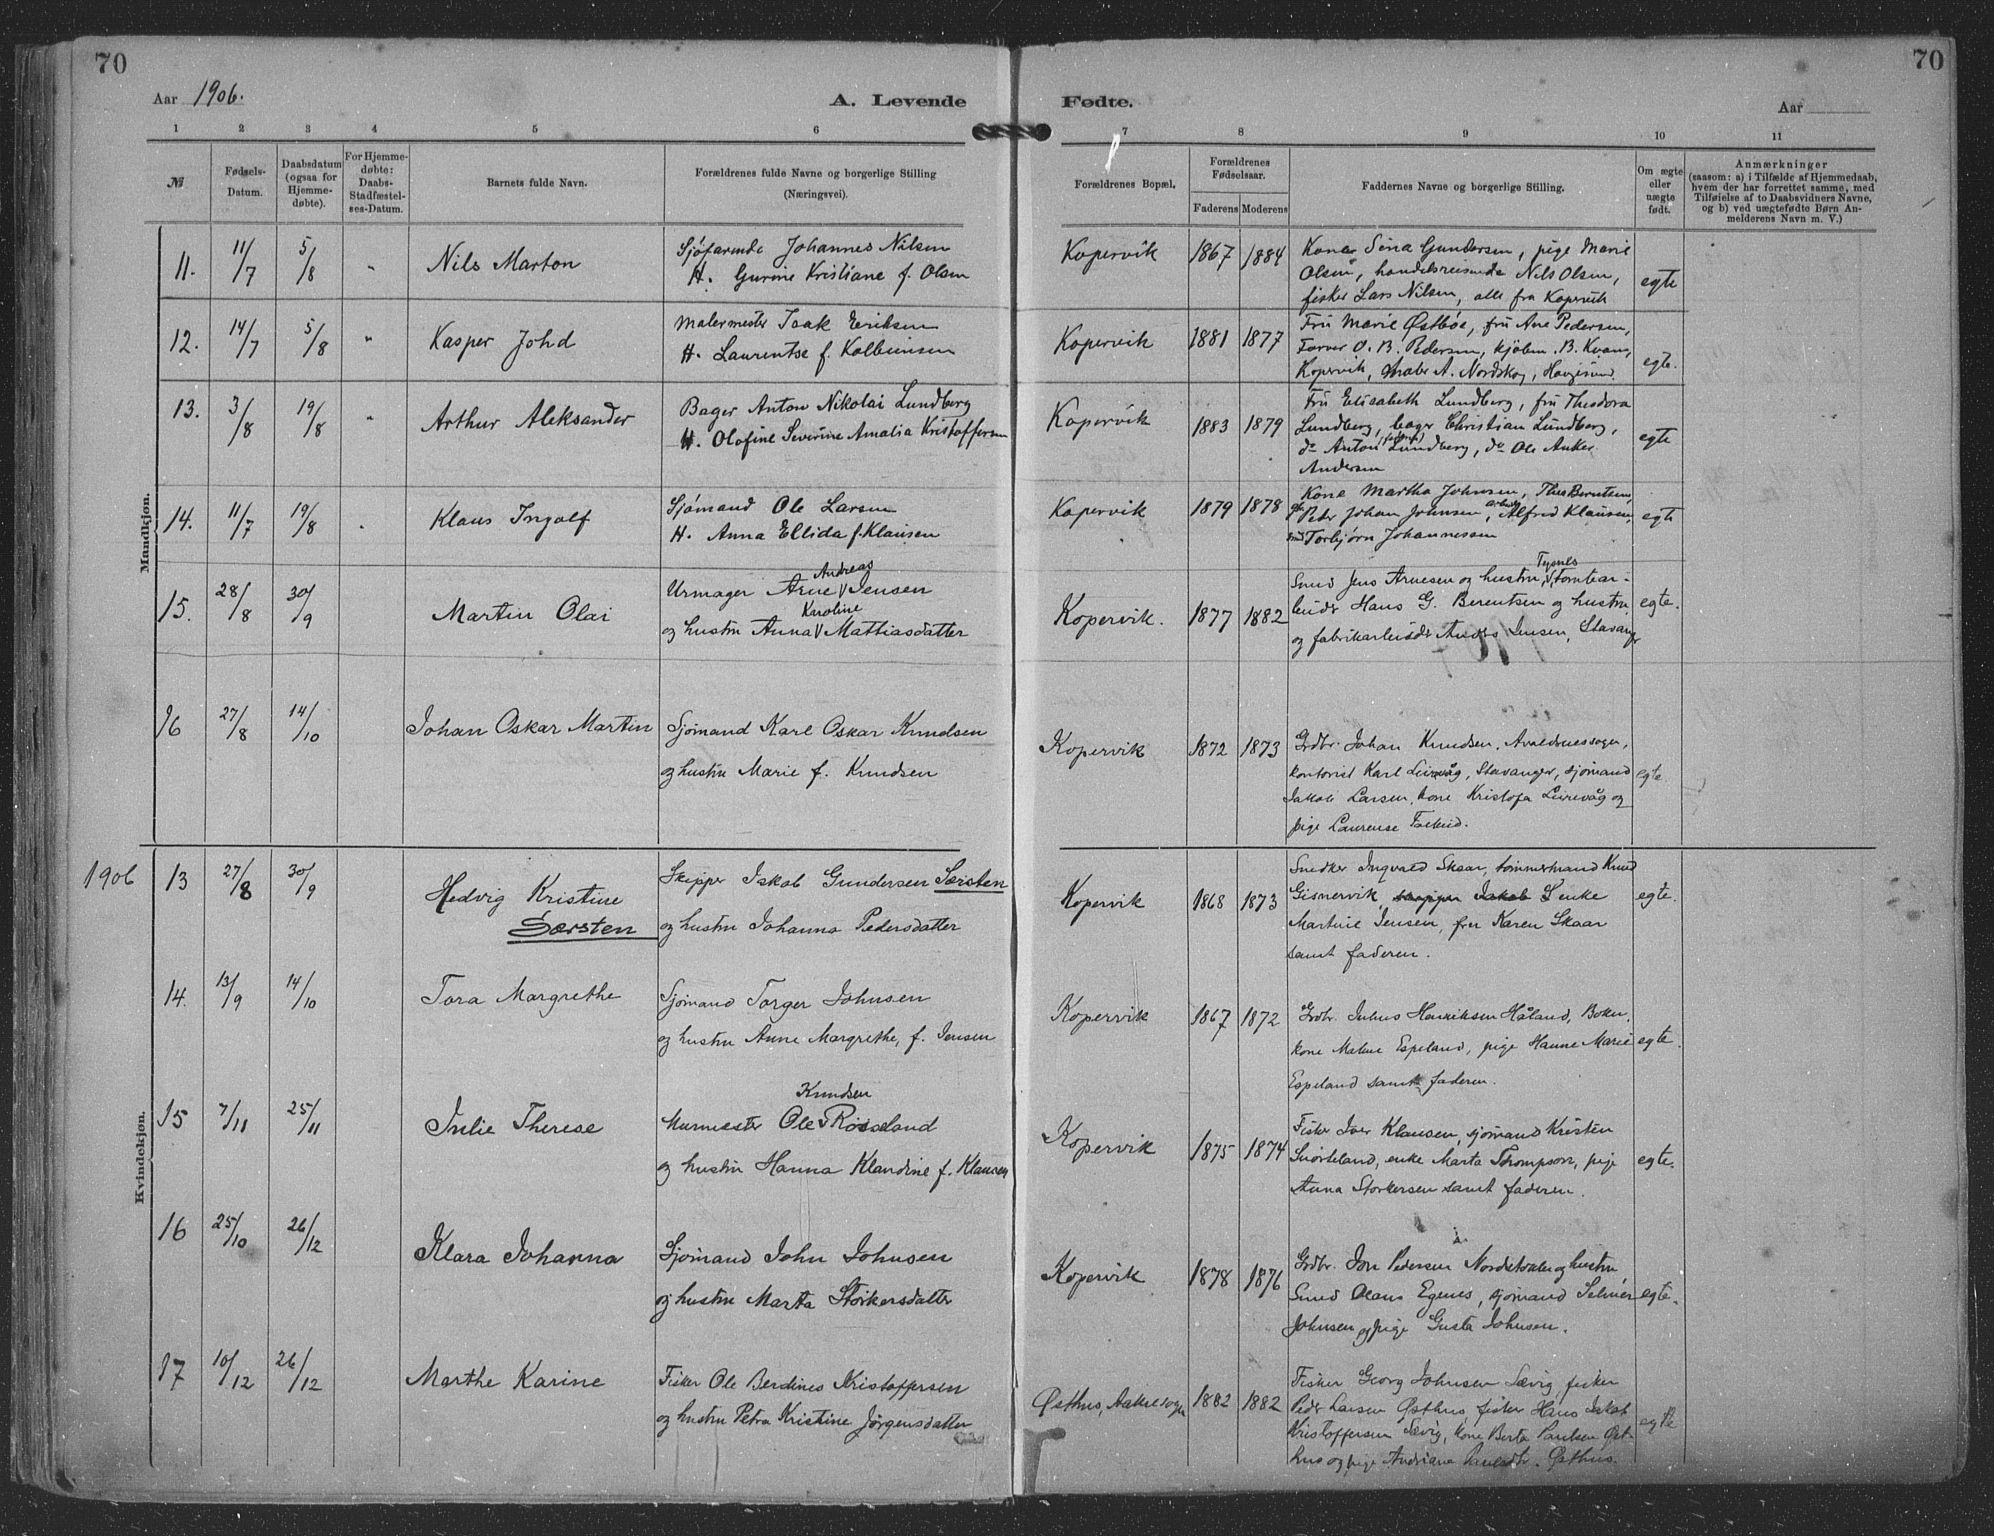 70
70
Aar 1906.
A. Levende
Fødte.
Aar
1 2 3 4 5 6 7 8 9 10 11
№
Fødsels-
Datum.
Daabsdatum
(ogsaa for
Hjemme-
døbte).
For Hjemme-
døbte:
Daabs-
Stadfæstel-
ses-Datum.
Barnets fulde Navn.
Forældrenes fulde Navne og borgerlige Stilling
(Næringsvei).
Forældrenes Bopæl.
Forældrenes
Fødselsaar.
Faderens
Moderens
Faddernes Navne og borgerlige Stilling.
Om ægte
eller
uægte
født.
Anmærkninger
(saasom: a) i Tilfælde af Hjemmedaab,
hvem der har forrettet samme, med
Tilføielse af to Daabsvidners Navne,
og b) ved uægtefødte Børn An-
melderens Navn m. V.)
Mandkjøn.
11. 11/7 5/8 " Nils Marton
Sjøfarende Johannes Nilsen
H. Gurine Kristiane f. Olsen
Kopervik 1867 1884
Kone Sina Gundersen, pige Marie
Olsen, handelsreisende Nils Olsen,
fisker Lars Nilsen, alle fra Kopervik
egte
12. 14/7 5/8 " Kasper Johd
Malermester Isak Eriksen
H. Laurentse f. Kolbeinsen
Kopervik 1881 1877
Fru Marie Østbøe, fru Ane Pedersen,
Farver O. B. Pedersen, kjøbm. B. Kvam,
Kopervik, maler A. Nordskog, Haugesund.
egte.
13. 3/8 19/8 " Arthur Aleksander
Bager Anton Nikolai Lundberg
H. Olofine Severine Amalia Kristoffersen
Kopervik 1883 1879
Fru Elisabeth Lundberg, fru Theodora
Lundberg, bager Christian Lundberg,
do Anton Lundberg, do Ole Anker
Andersen
egte
14. 11/7 19/8 " Klaus Ingolf
Sjømand Ole Larsen
H. Anna Ellida f. Klausen
Kopervik 1879 1878
Kone Martha Johnsen, Thea Berntsen,
Peter Johan Johnsen, arbeid. Alfred Klausen,
smd Torbjørn Johannessen
egte
15. 28/8 30/9 Martin Olai
Andreas
Urmager Arne V Jensen
Karoline
og hustru Anna V Mattiasdatter
Kopervik. 1877 1882
Tysnes
Smed Jens Arnesen og hustru, V, tomtear-
beider Hans G. Berentsen og hustru
og fabrikarbeider Anders Jensen, Stavanger
egte.
16 27/8 14/10 Johan Oskar Martin
Sjømand Karl Oskar Knudsen
og hustru Marie f. Knudsen
Kopervik 1872 1873
Grdbr. Johan Knudsen, Avaldsnessogn,
kontorist Karl Leirvåg, Stavanger, sjømand
Jakob Larsen, kone Kristofa Leirevåg og
pige Laurense Falkeid.
egte
1906
Kvindekjøn.
13 27/8 30/9 Hedvig Kristine
Særsten
Skipper Jakob Gundersen Særsten
og hustru Johanna Pedersdatter
Kopervik 1868 1873
Snedker Ingvald Skaar, tømmermand Knud
Gismervik, skipper Jakob Enke
Martine Jensen, fru Karen Skaar
samt faderen.
egte.
14. 13/9 14/10 Tora Margrethe
Sjømand Torger Johnsen
og hustru Anne Margrethe, f. Jensen
Kopervik 1867 1872
Grdbr. Julius Henriksen Håland, Bokn,
kone Malene Espeland, pige Hanne Marie
Espeland samt faderen.
egte.
15 7/11 25/11 Julie Therese
Knudsen
Murmester Ole V Røsseland
og hustru Hanna Klaudine f. Klausen
Kopervik 1875 1874
Fisker Iver Klausen, sjømand Kristen
Snørteland, enke Marta Thompson, pige
Anna Storkersen samt faderen.
egte.
16 25/10 26/12 Klara Johanna
Sjømand John Johnsen
og hustru Marta Storkersdatter
Kopervik 1878 1876
Grdbr. Jon Pedersen Nordstokke og hustru
Smed Olaus Egenes, sjømand Selmer
Johnsen og pige Gusta Johnsen.
egte.
17 10/12 26/12 Marthe Karine
Fisker Ole Berdines Kristoffersen
og hustru Petra Kristine Jørgensdatter
Østhus, Aakresogn 1882 1882
Fisker Georg Johnsen Sævig, fisker
Peder Larsen Østhus, fisker Hans Jakob
Kristoffersen Sævig, kone Berta Paulsen Øst-
hus og pige Andriane Paulsdtr. Østhus.
egte